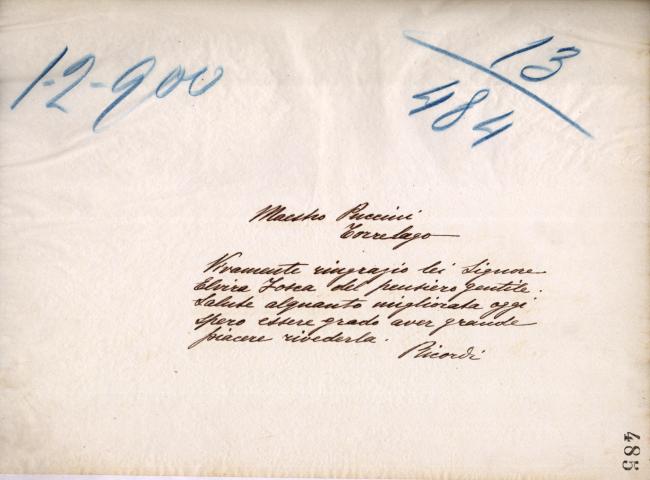 1-2-900
13
484
Maestro Puccini
Torrelago
Vivamente ringrazio lei Signore
Elvira Tosca del pensiero gentile.
Salute alquanto migliorata oggi
spero essere grado aver grande
piacere rivederla.
Ricordi
485